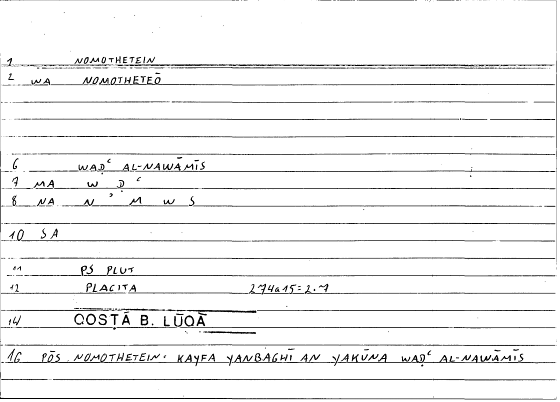 1 NOMOTHETEIN
2 WA NOMOTHETEŌ
6 WAḌʿ AL-NAWĀMĪS
7 MA W Ḍ ʿ
8 NA N ʾ M W S
10 SA
11 PS PLUT
12 PLACITA 274a15=2.7
14 QOSṬĀ B. LŪQĀ
16 PŌS NOMOTHETEIN· KAYFA YANBAGHĪ AN YAKŪNA WAḌʿ AL-NAWĀMĪS